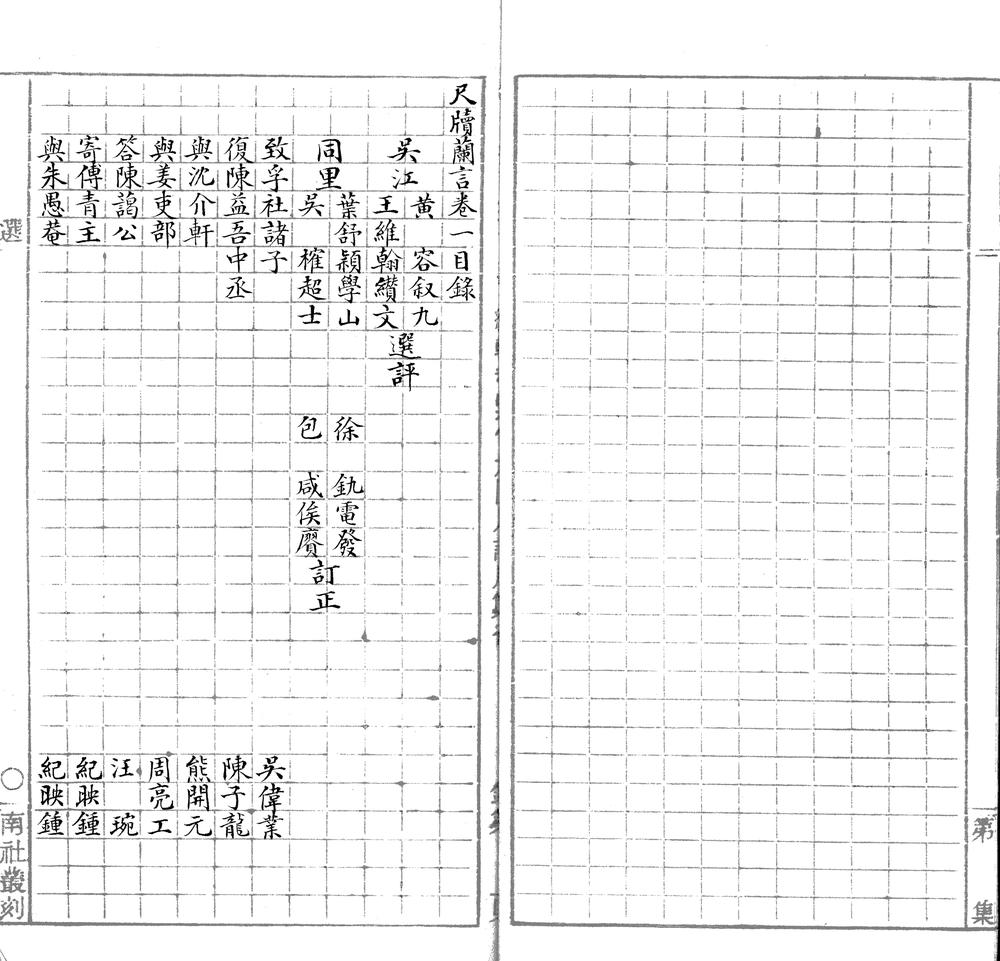 第
集
尺牘蘭言卷一目錄
吳江
黃　容叙九
王維翰纘文
選評
同里
葉舒穎學山
吳　㩁超士
徐　釚電發
包　咸俟賡
訂正
致孚社諸子　吳偉業
復陳益吾中丞　陳子龍
與沈介軒　熊開元
與姜吏部　周亮工
答陳藹公　汪　琬
寄傅青主　紀映鍾
與朱愚菴　紀映鍾
選
〇
南社叢刻